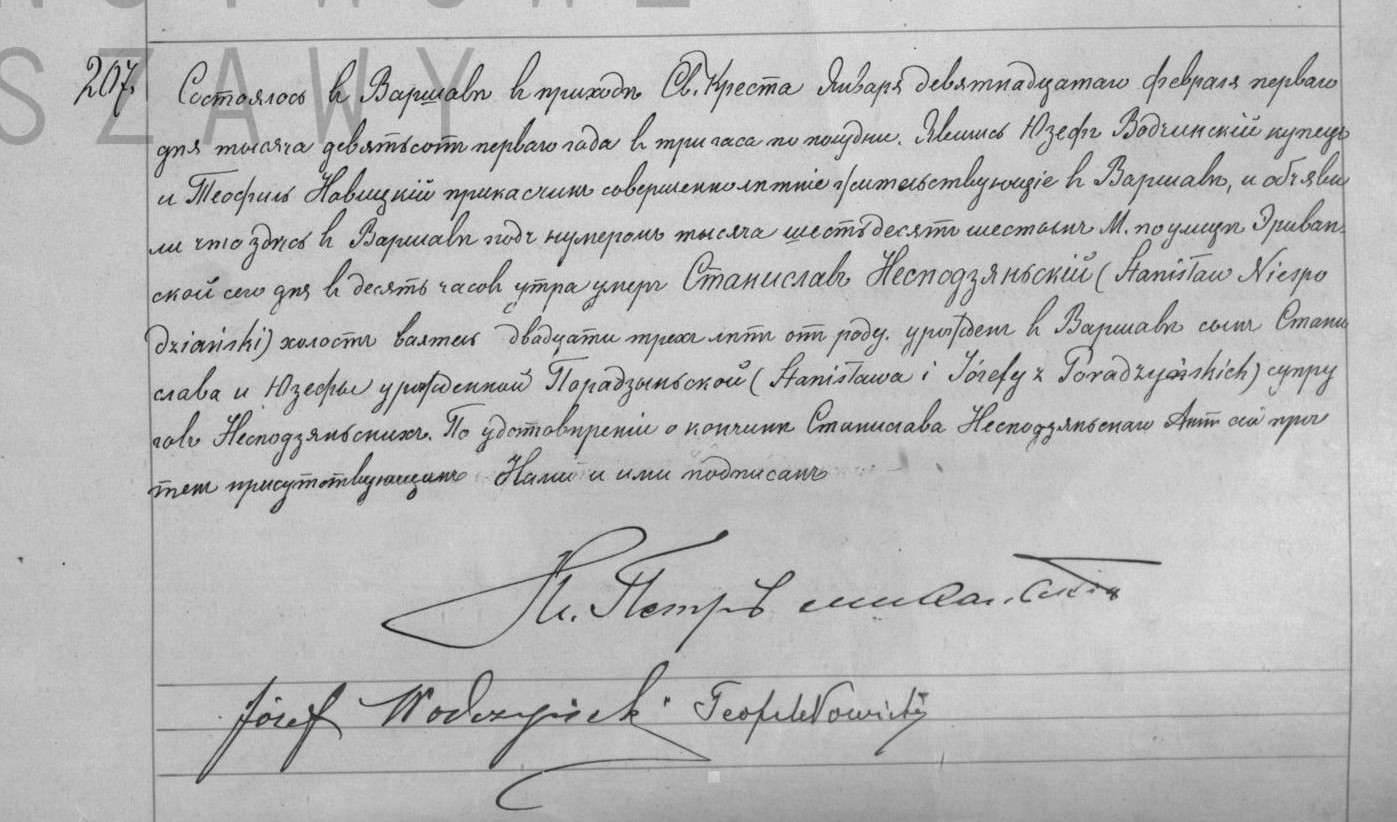 SZAWY
207.
Состоялось в Варшавѣ в приходѣ Св. Креста Января девятнадцатаго февраля перваго
дня тысяча девятьсотъ перваго года в три часа по полудни. Явились Юзефъ Водчинскій купецъ
и Теофиль Новицкій прикасчикъ совершеннолѣтніе жительствующіе в Варшавѣ, и объяви
ли что здѣсь в Варшавѣ подъ нумеромъ тысяча шестьдесятъ шестымъ М. по улицѣ Эриван
ской сего дня в десять часов утра умеръ Станиславъ Несподзяньскій (Stanisław Niespo
dziański) холостъ двадцати трехъ лѣтъ от роду. урожденъ в Варшавѣ сынъ Стани
слава и Юзефы урожденной Порадзыньской (Stanisława i Józefy z Poradzyńskich) супру
говъ Несподзяньскихъ. По удостовѣреніи о кончинѣ Станислава Несподзяньскаго Актъ сей проч
тенъ присутствующимъ Нами и ими подписанъ
Кс. Петръ
Józef Wodczyński Teofil Nowicki